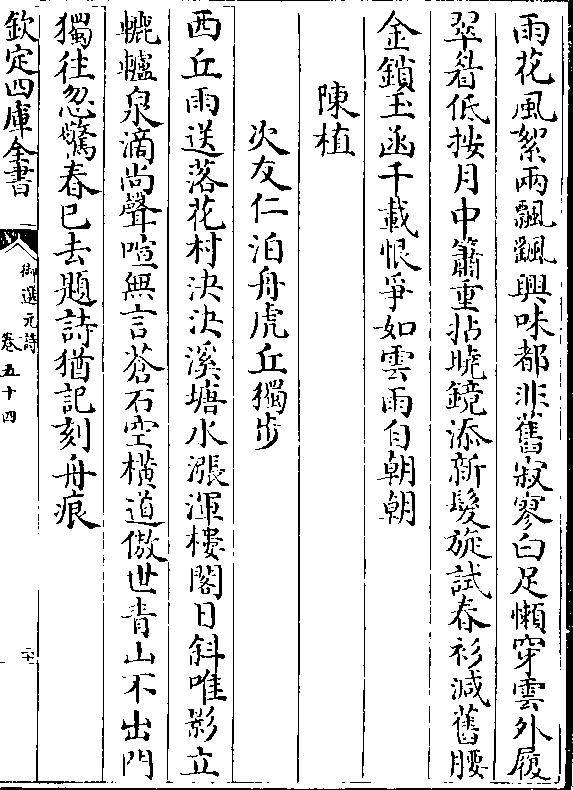 雨花風絮兩飄颻興味都非舊寂寥白足懶穿雲外履
翠眷低按月中簫重拈曉鏡添新髮旋試春衫減舊腰
金鎖玉函千載恨爭如雲雨自朝朝
陳植
次友仁泊舟虎丘獨步
西丘雨送落花村決決溪塘水漲渾樓閣日斜唯影立
轆轤泉滴尚聲喧無言蒼石空橫道傲世青山不出門
獨往忽驚春已去題詩猶記刻舟痕
欽定四庫全書
御選元詩
卷五十四